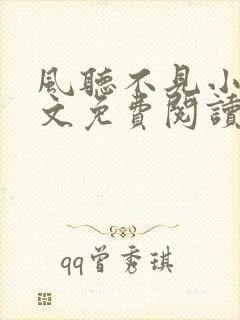 風聽不見小
文免費閱讀
qq曾秀琪